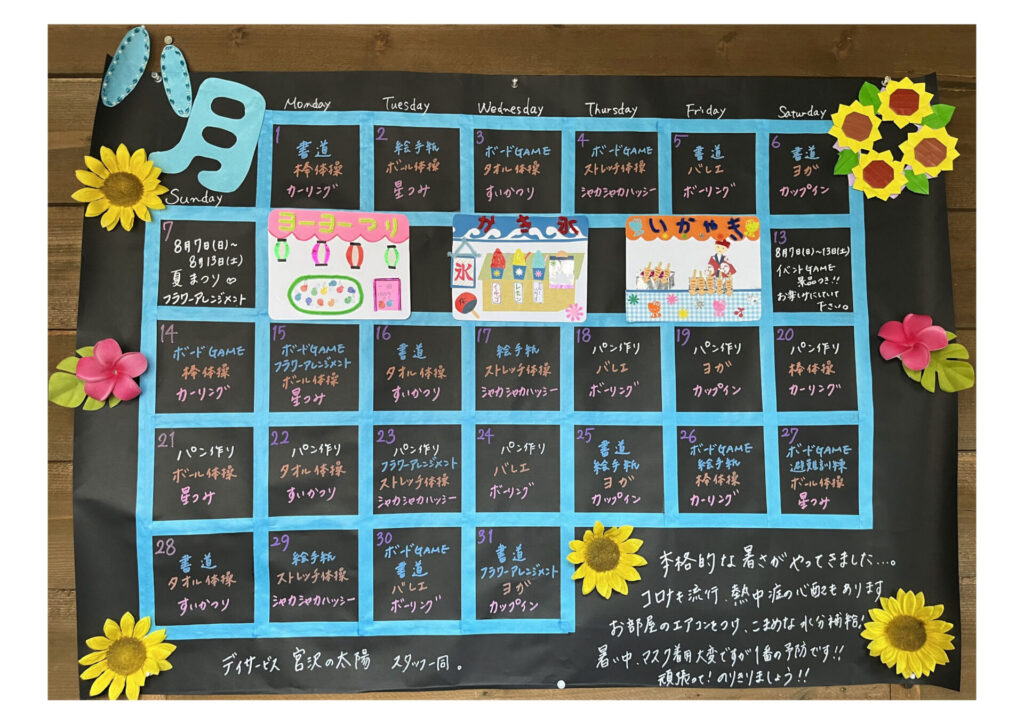 八月
Monday
Tuesday
Wednesday
Thursday
Friday
Saturday
Sunday
1
書道
棒体操
カーリング
2
絵手紙
ボール体操
星つみ
3
ボードGAME
タオル体操
すいかつり
4
ボードGAME
ストレッチ体操
シャカシャカハッシー
5
書道
バレエ
ボーリング
6
書道
ヨガ
カップイン
7
8月7日(日)~
8月13日(土)
夏まつり♡
フラワーアレンジメント
ヨーヨーつり
かき氷
氷
いかやき
13
8月7日(日)~13日(土)
イベントGAME
景品つき!!
お楽しみにしていて
下さい。
14
ボードGAME
棒体操
カーリング
15
ボードGAME
フラワーアレンジメント
ボール体操
星つみ
16
書道
タオル体操
すいかつり
17
絵手紙
ストレッチ体操
シャカシャカハッシー
18
パン作り
バレエ
ボーリング
19
パン作り
ヨガ
カップイン
20
パン作り
棒体操
カーリング
21
パン作り
ボール体操
星つみ
22
パン作り
タオル体操
すいかつり
23
パン作り
フラワーアレンジメント
ストレッチ体操
シャカシャカハッシー
24
パン作り
バレエ
ボーリング
25
書道
絵手紙
ヨガ
カップイン
26
ボードGAME
絵手紙
棒体操
カーリング
27
ボードGAME
避難訓練
ボール体操
星つみ
28
書道
タオル体操
すいかつり
29
絵手紙
ストレッチ体操
シャカシャカハッシー
30
ボードGAME
書道
バレエ
ボーリング
31
書道
フラワーアレンジメント
ヨガ
カップイン
本格的な暑さがやってきました…。
コロナも流行、熱中症の心配もあります
お部屋のエアコンをつけ、こまめな水分補給!
暑い中、マスク着用大変ですが1番の予防です!!
頑張って!のりきりましょう!!
デイサービス 宮沢の太陽 スタッフ一同。